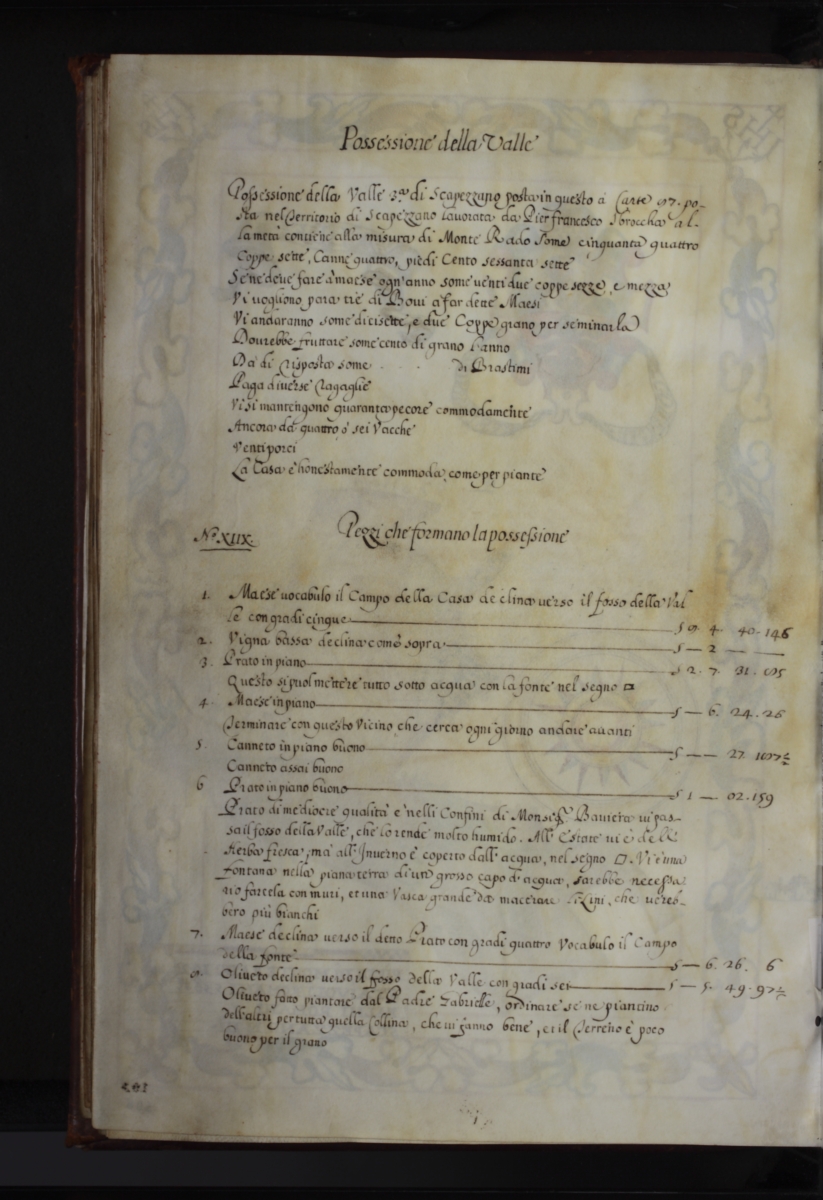 Possessione della Valle
Possessione della Valle 3.ª di Scapezzano posta in questo à Carte 97. po-
sta nel Territorio di Scapezzano lavorata da Pierfrancesco Sbroccha al-
la metà contiene alla misura di Monte Rado Some cinquanta quattro
Coppe sette, Canne quattro, piedi Cento sessanta sette
Se ne deve fare à maese ogn'anno some venti due coppe sezze, e mezza
Vi vogliono para trè di Bovi a far dette Maesi
Vi andaranno some dicisette, e due Coppe grano per seminarla
Dourebbe fruttare some cento di grano l'anno
Dà di risposta some . . . di Brastimi
Paga diverse ragaglie
Vi si mantengono quaranta pecore commodamente
Ancora da quattro ò sei Vacche
Venti porci
La Casa è honestamente commoda, come per piante
N.º XIIX.
Pezzi che formano la possessione
1. Maese vocabulo il Campo della Casa declina verso il fosso della Val
le con gradi cinque S 9. 4. 40. 146
2. Vigna bassa declina com'è sopra S — 2 — —
3. Prato in piano S 2. 7. 31. 95
Questo si puol mettere tutto sotto acqua con la fonte nel segno □
4. Maese in piano S — 6. 24. 26
Terminare con questo Vicino che cerca ogni giorno andare avanti
5. Canneto in piano buono S — — 27.
Canneto assai buono
6 Prato in piano buono S 1 — 02. 159
Prato di mediocre qualità è nelli Confini di Monsig.r Baviera vi pas-
sa il fosso della Valle, che lo rende molto humido. All'Estate vi è dell'
Herba fresca, mà all'Inverno è coperto dall'acqua, nel segno □. Vi è una
fontana nella piana terra di un grosso capo d'acqua, sarebbe necessa
rio farcela con muri, et una Vasca grande da macerare li Lini, che vereb-
bero più bianchi
7. Maese declina verso il detto Prato con gradi quattro Vocabulo il Campo
della fonte S — 6. 26. 6
Oliveto declina verso il fosso della Valle con gradi sei S — 5. 49. 97
Oliveto fatto piantare dal Padre Gabrielle, ordinare se ne piantino
dell'altri per tutta quella Collina, che vi fanno bene, et il Terreno è poco
buono per il grano